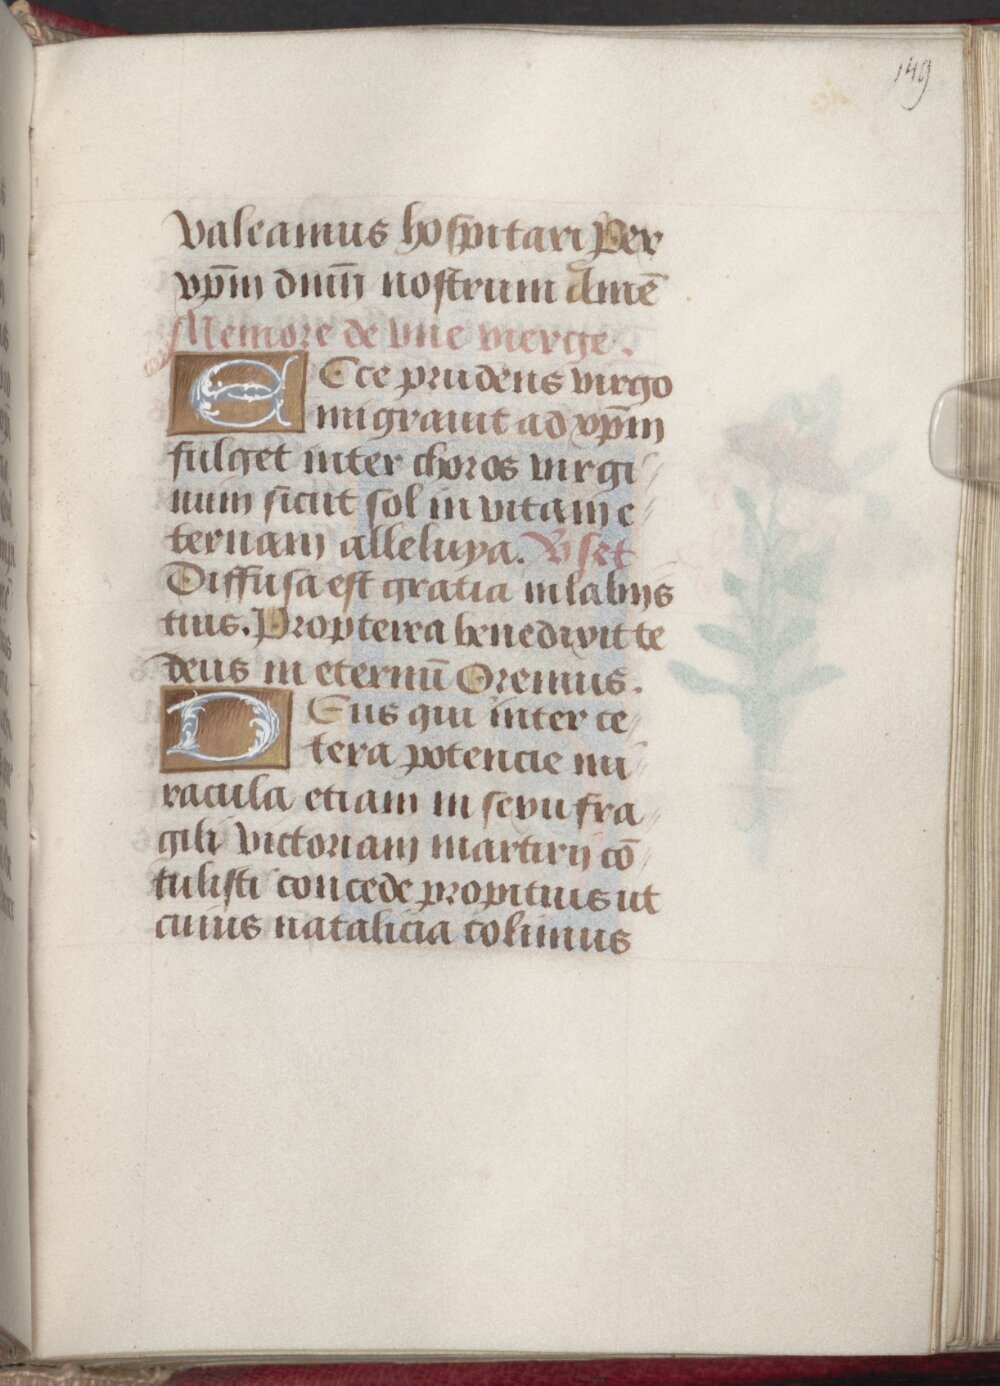 149
valeamus hospitari Per
xp̄m dnm̄ nostrum Amē
Memore de vne vierge.
Ecce prudens virgo
migrauit ad xp̄m
fulget inter choros virgi
num sicut sol in vitam e
ternam alleluya. Vset
Diffusa est gratia in labijs
tuis. Propterea benedixit te
deus in eternū Oremus.
Deus qui inter ce
tera potencie mi
racula etiam in sexu fra
gili victoriam martirij cō
tulisti concede propitius ut
cuius natalicia colimus